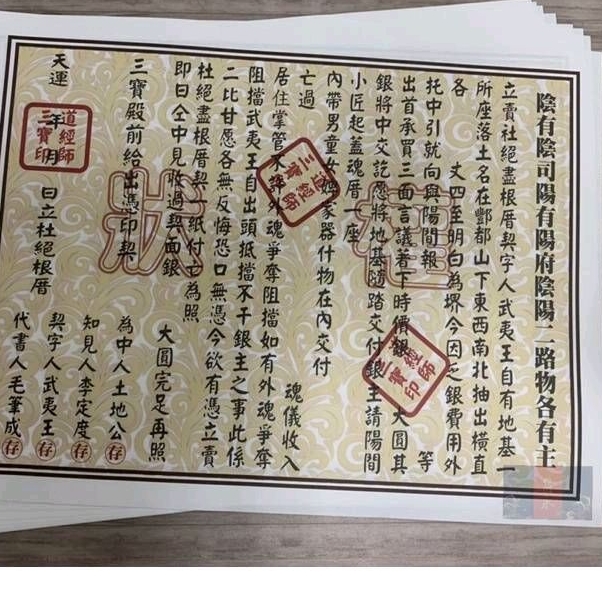 陰有陰司陽有陽府陰陽二路物各有主
立賣社絕盡根厝契字人武夷王自有地基一
所座落土名在酆都山下東西南北抽出橫直
各丈四至明白為堺今因乏銀費用外
托中引就向與陽間報等
出首承買三面言議著下時價銀大圓其
銀將中交訖愿將地基隨踏交付銀主請陽間
小匠起蓋魂厝一座
內帶男童女婢家器什物在內交付
亡過魂儀收入
居住掌管不許外魂爭奪阻擋如有外魂爭奪
阻擋武夷王自出頭抵擋不干銀主之事此係
二比甘愿各無反悔恐口無憑今欲有憑立賣
杜絕盡根厝契一紙付亡為照
即日仝中見收過契面銀大圓完足再照
三寶殿前給出憑印契
為中人土地公
知見人李定度
契字人武夷王
代書人毛筆成
天運年月日立杜絕根厝
道經師三寶印
道經師三寶印